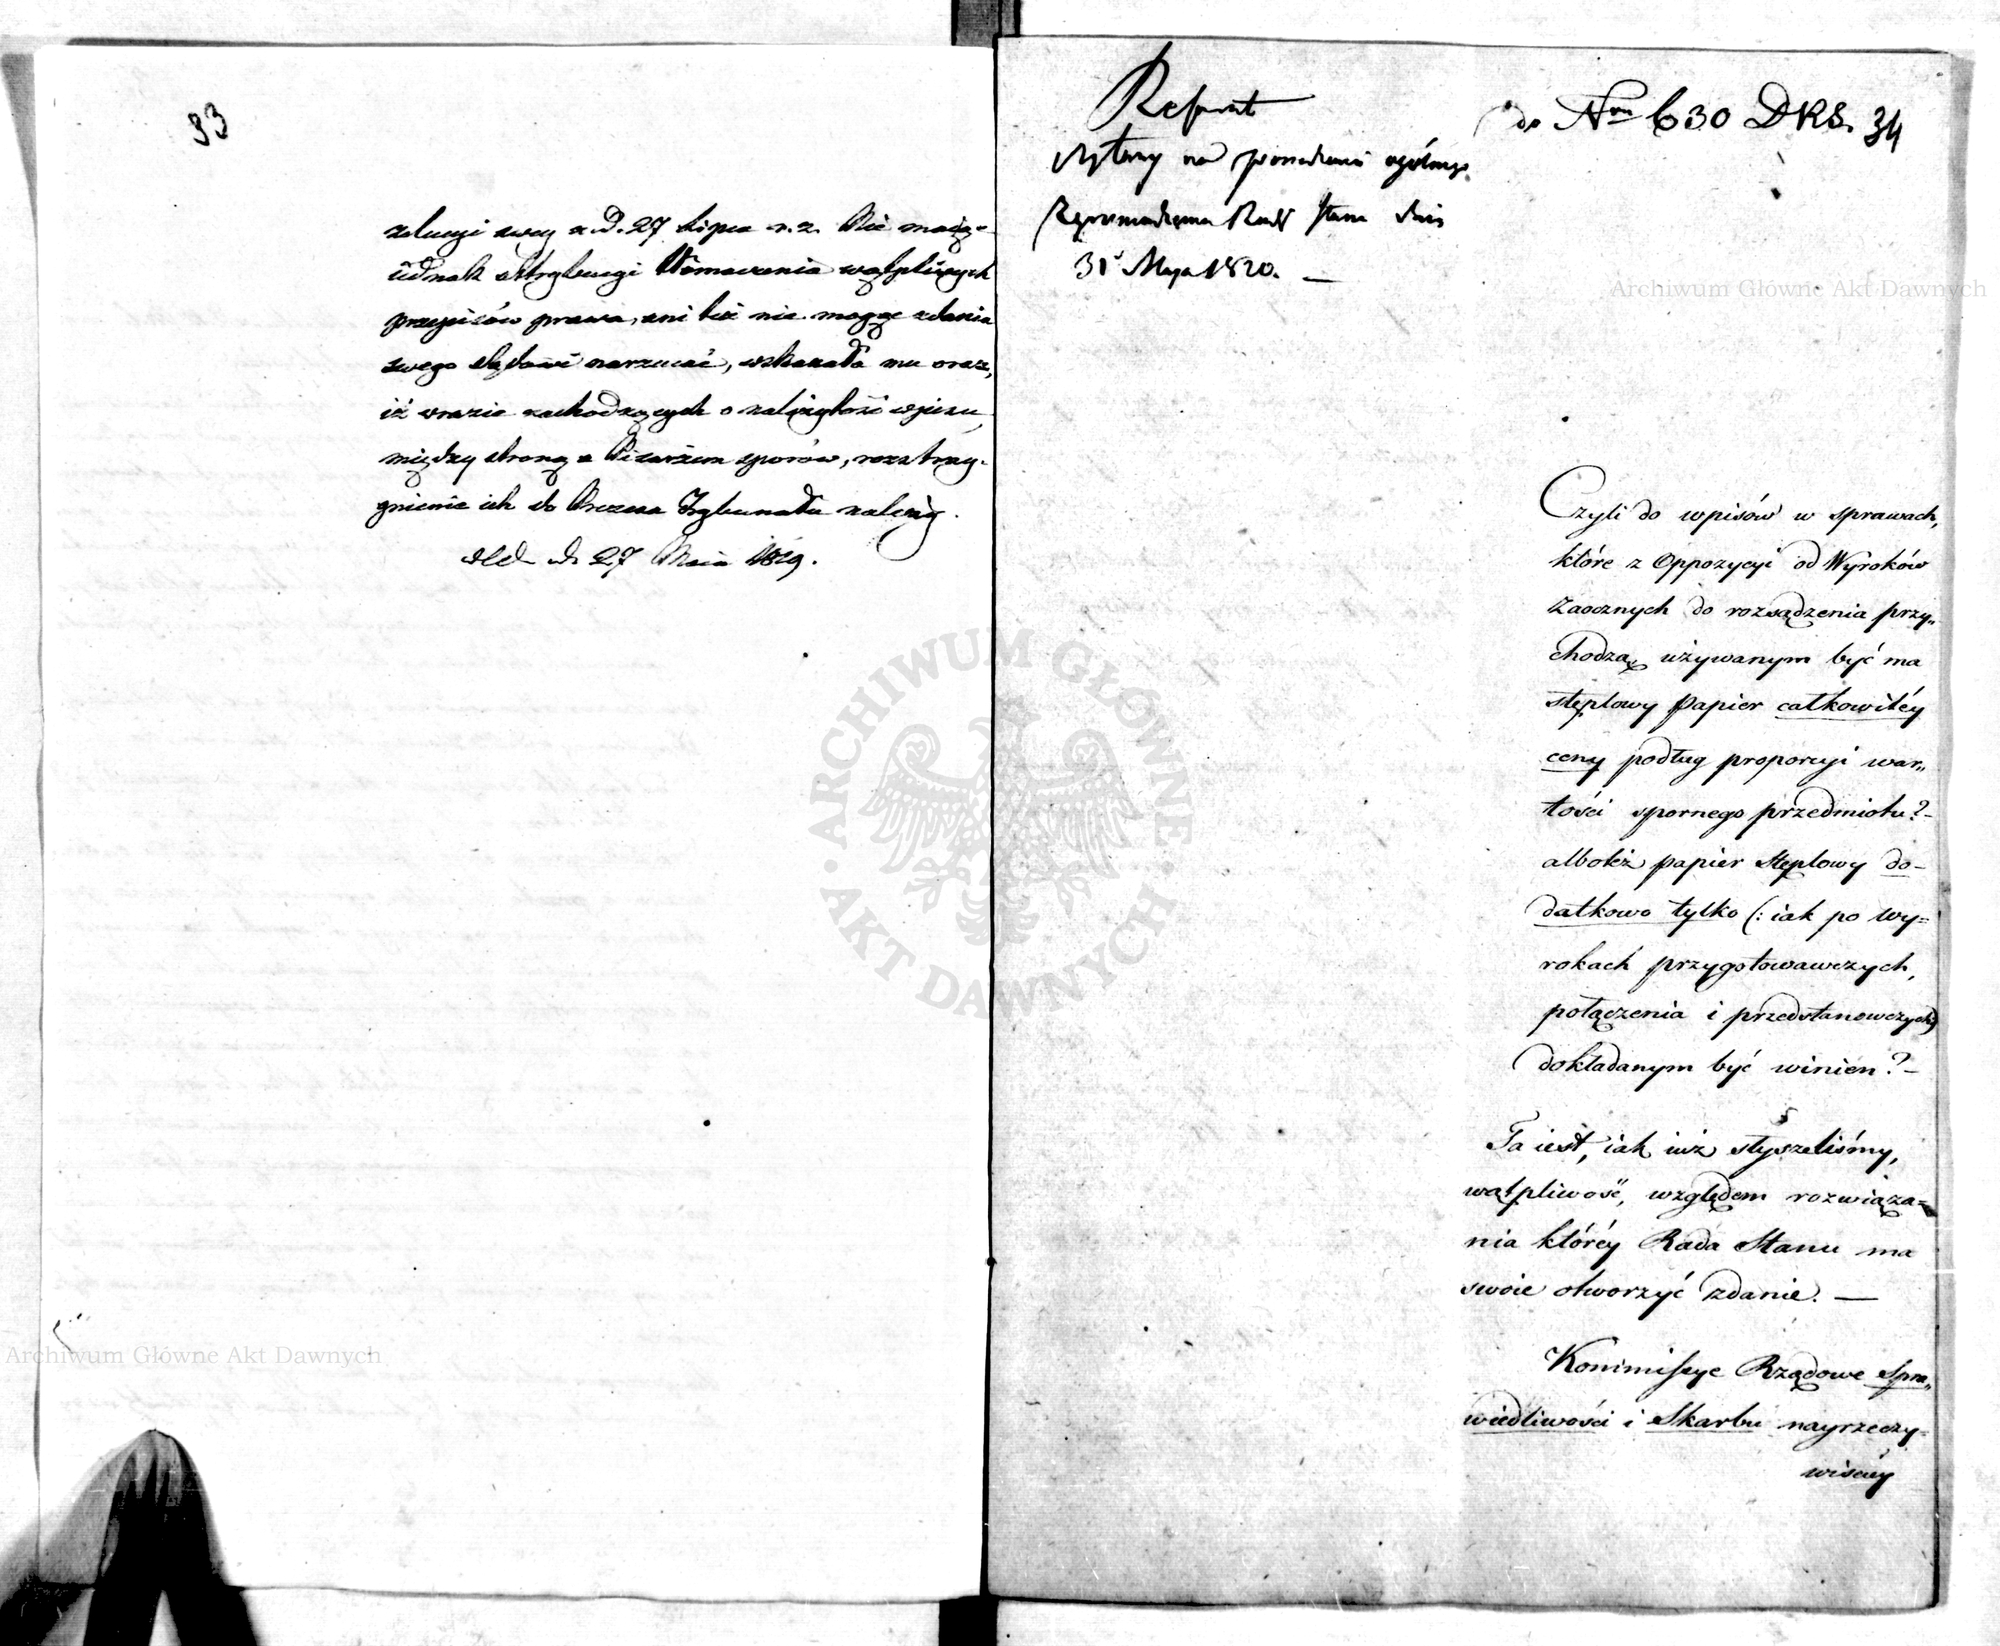 33
zolucyi swey z d. 27 Lipca r. z. Nie maiąc
iednak attrybucyi tłómaczenia wątpliwych
przepisów prawa, ani też nie mogąc zdania
swego Sądowi narzucać, wskazała mu oraz,
iż w razie zachodzących o należytość wpisu,
między stroną a Pisarzem sporów, rozstrzy-
gnienie ich do Prezesa Trybunału należy.
d. 27 Maia 1819.
Referat
czytany na posiedzeniu ogólnego
Zgromadzenia Rady Stanu dnia
31 Maja 1820. —
do Nro 630 DKS. 34
Czyli do wpisów w sprawach,
które z Oppozycyi od Wyroków
Zaocznych do rozsądzenia przy„
chodzą, używanym być ma
stęplowy Papier całkowitéy
ceny podług proporcyi war„
tości spornego przedmiotu?-
albotéż papier stęplowy do-
datkowo tylko (: iak po Wy=
rokach przygotowawczych,
połączenia i przedstanowczych)
dokładanym być winien?-
Ta iest, iak iuż słyszeliśmy,
wątpliwość, względem rozwiąza=
nia któréy Rada Stanu ma
swoie otworzyć zdanie. —
Kommissye Rządowe Spra„
wiedliwości i Skarbu nayrzeczy-
wisciéy
Archiwum Główne Akt Dawnych
Archiwum Główne Akt Dawnych
ARCHIWUM GŁÓWNE · AKT DAWNYCH ·